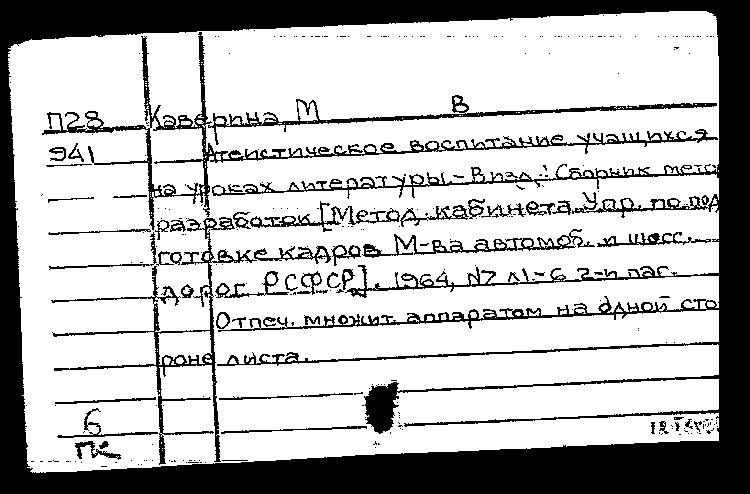 П28 Каверина, М В
941 Атеистическое воспитание учащихся
на уроках литературы.- В изд.: Сборник метод
разработок [Метод. кабинета Упр. по под
готовке кадров М-ва автомоб. и шосс.
дорог РСФСР]. 1964, №7 л1.-6 2-й паг.
Отпеч. множит. аппаратом на одной сто
роне листа.
6
ПК